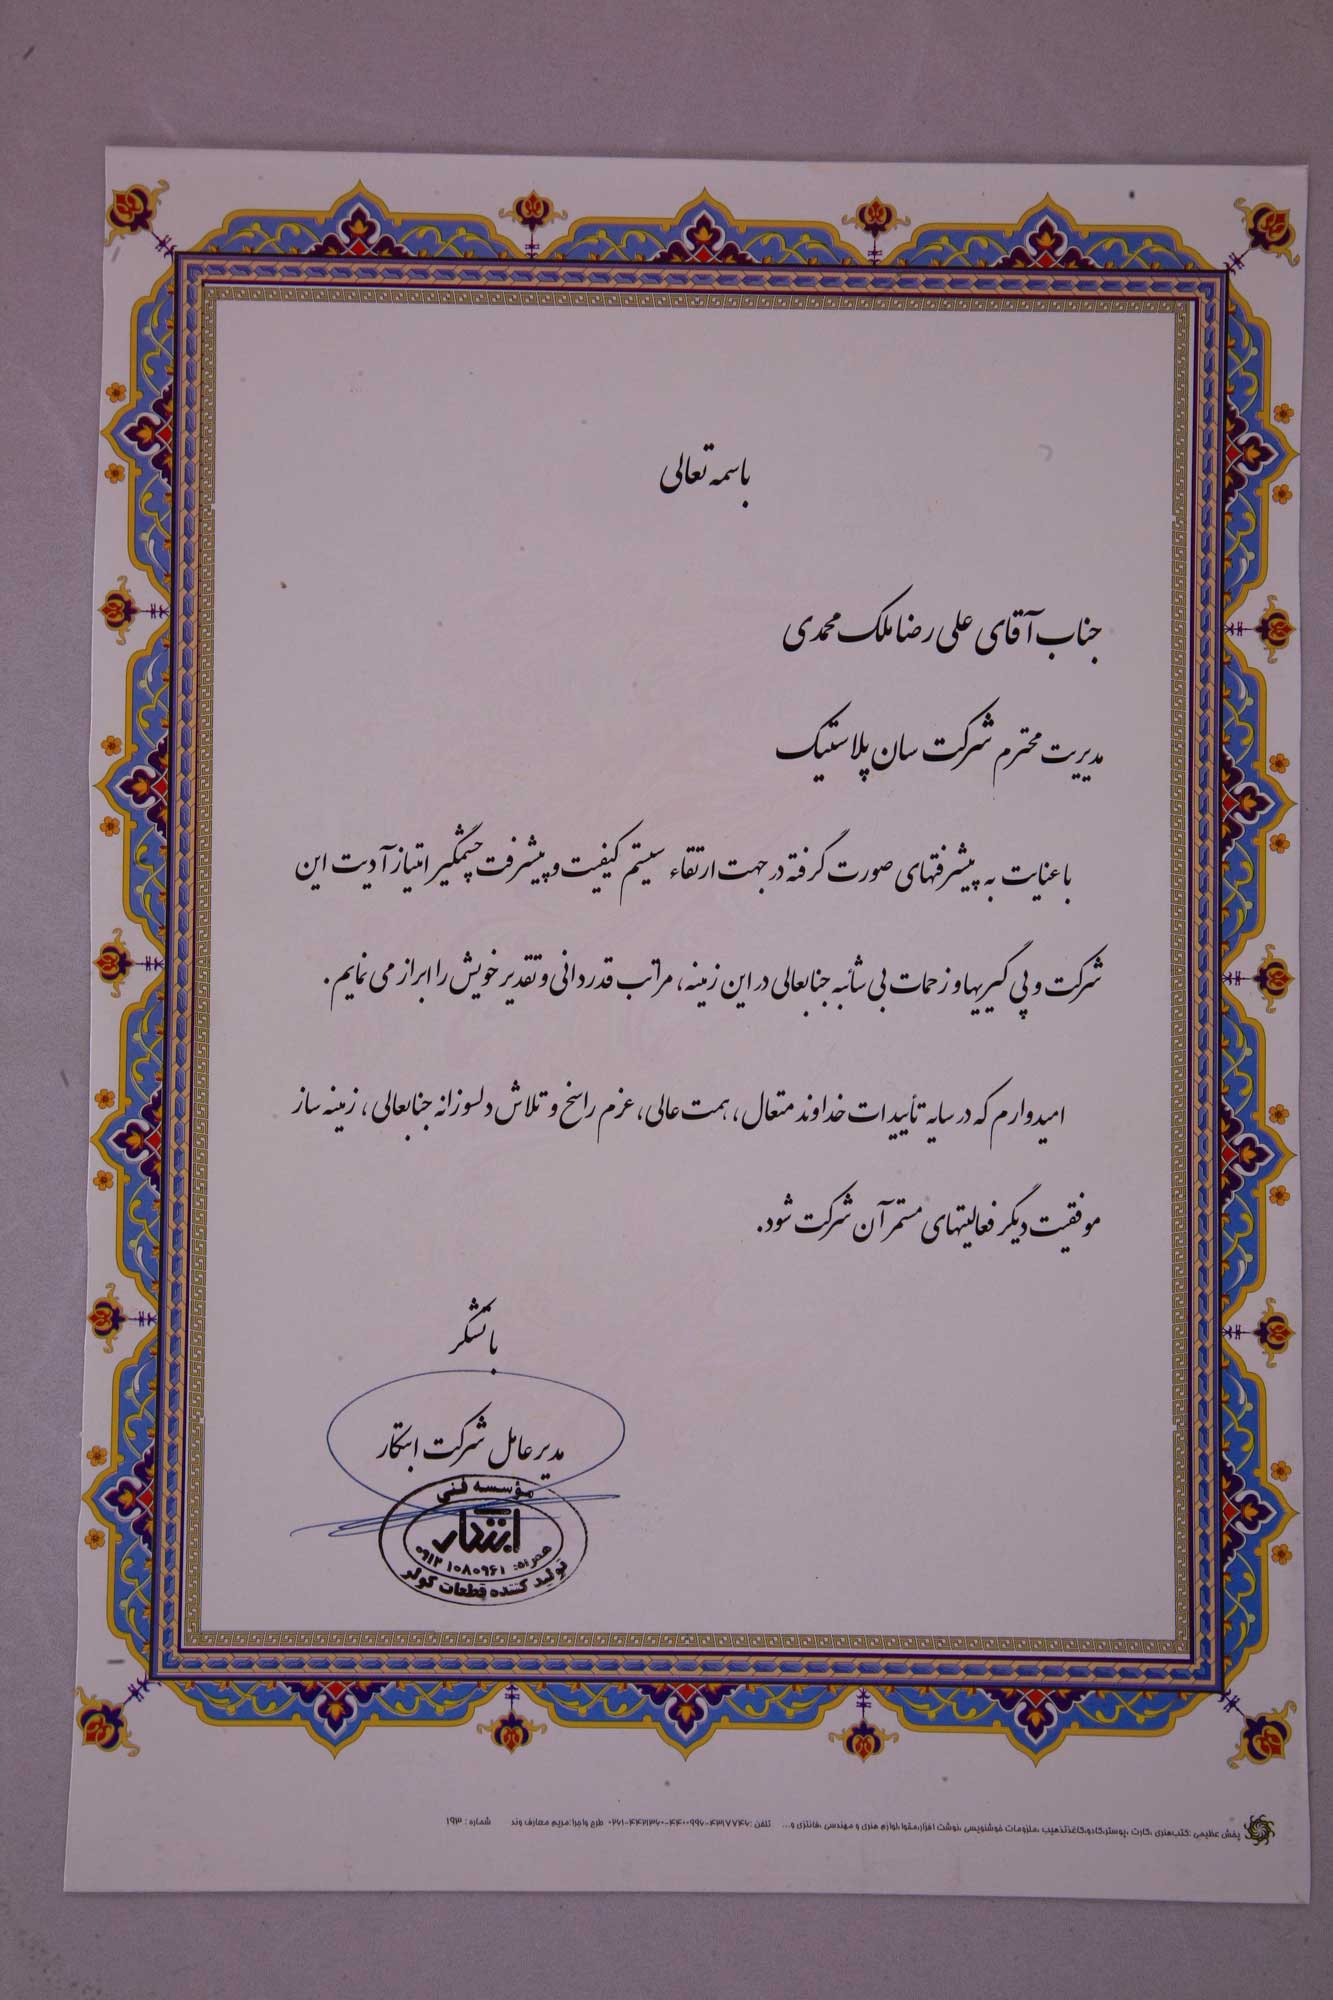 باسمه تعالی
جناب آقای علی رضا ملک محمدی
مدیریت محترم شرکت سان پلاستیک
با عنایت به پیشرفتهای صورت گرفته در جهت ارتقاء سیستم کیفیت و پیشرفت چشمگیر امتیاز آدیت این
شرکت و پی گیریها و زحمات بی شائبه جنابعالی در این زمینه، مراتب قدردانی و تقدیر خویش را ابراز می نمایم.
امیدوارم که در سایه تأییدات خداوند متعال، همت عالی، عزم راسخ و تلاش دلسوزانه جنابعالی، زمینه ساز
موفقیت دیگر فعالیتهای مستمر آن شرکت شود.
با تشکر
مدیر عامل شرکت ابتکار
مؤسسه فنی
ابتکار
همراه: ۰۹۱۲ ۱۰۸۰۹۶۱
تولید کننده قطعات کولر
پخش عظیمی :کتب هنری ،کارت ،پوستر،کادو،کاغذتذهیب ،ملزومات خوشنویسی ،نوشت افزار،مقوا،لوازم هنری و مهندسی ،فانتزی و... تلفن :۴۳۱۷۷۴۶-۴۴۰۰۹۹۶-۴۴۲۱۳۶۰-۰۲۶۱ طرح واجرا:مریم معارف وند شماره : ۱۹۳